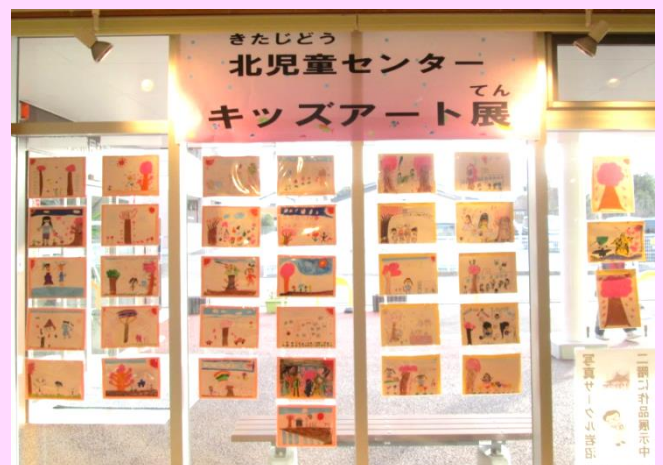 きたじどう
北児童センター
てん
キッズアート展
二階に作品展示中
写真サークル岩沼